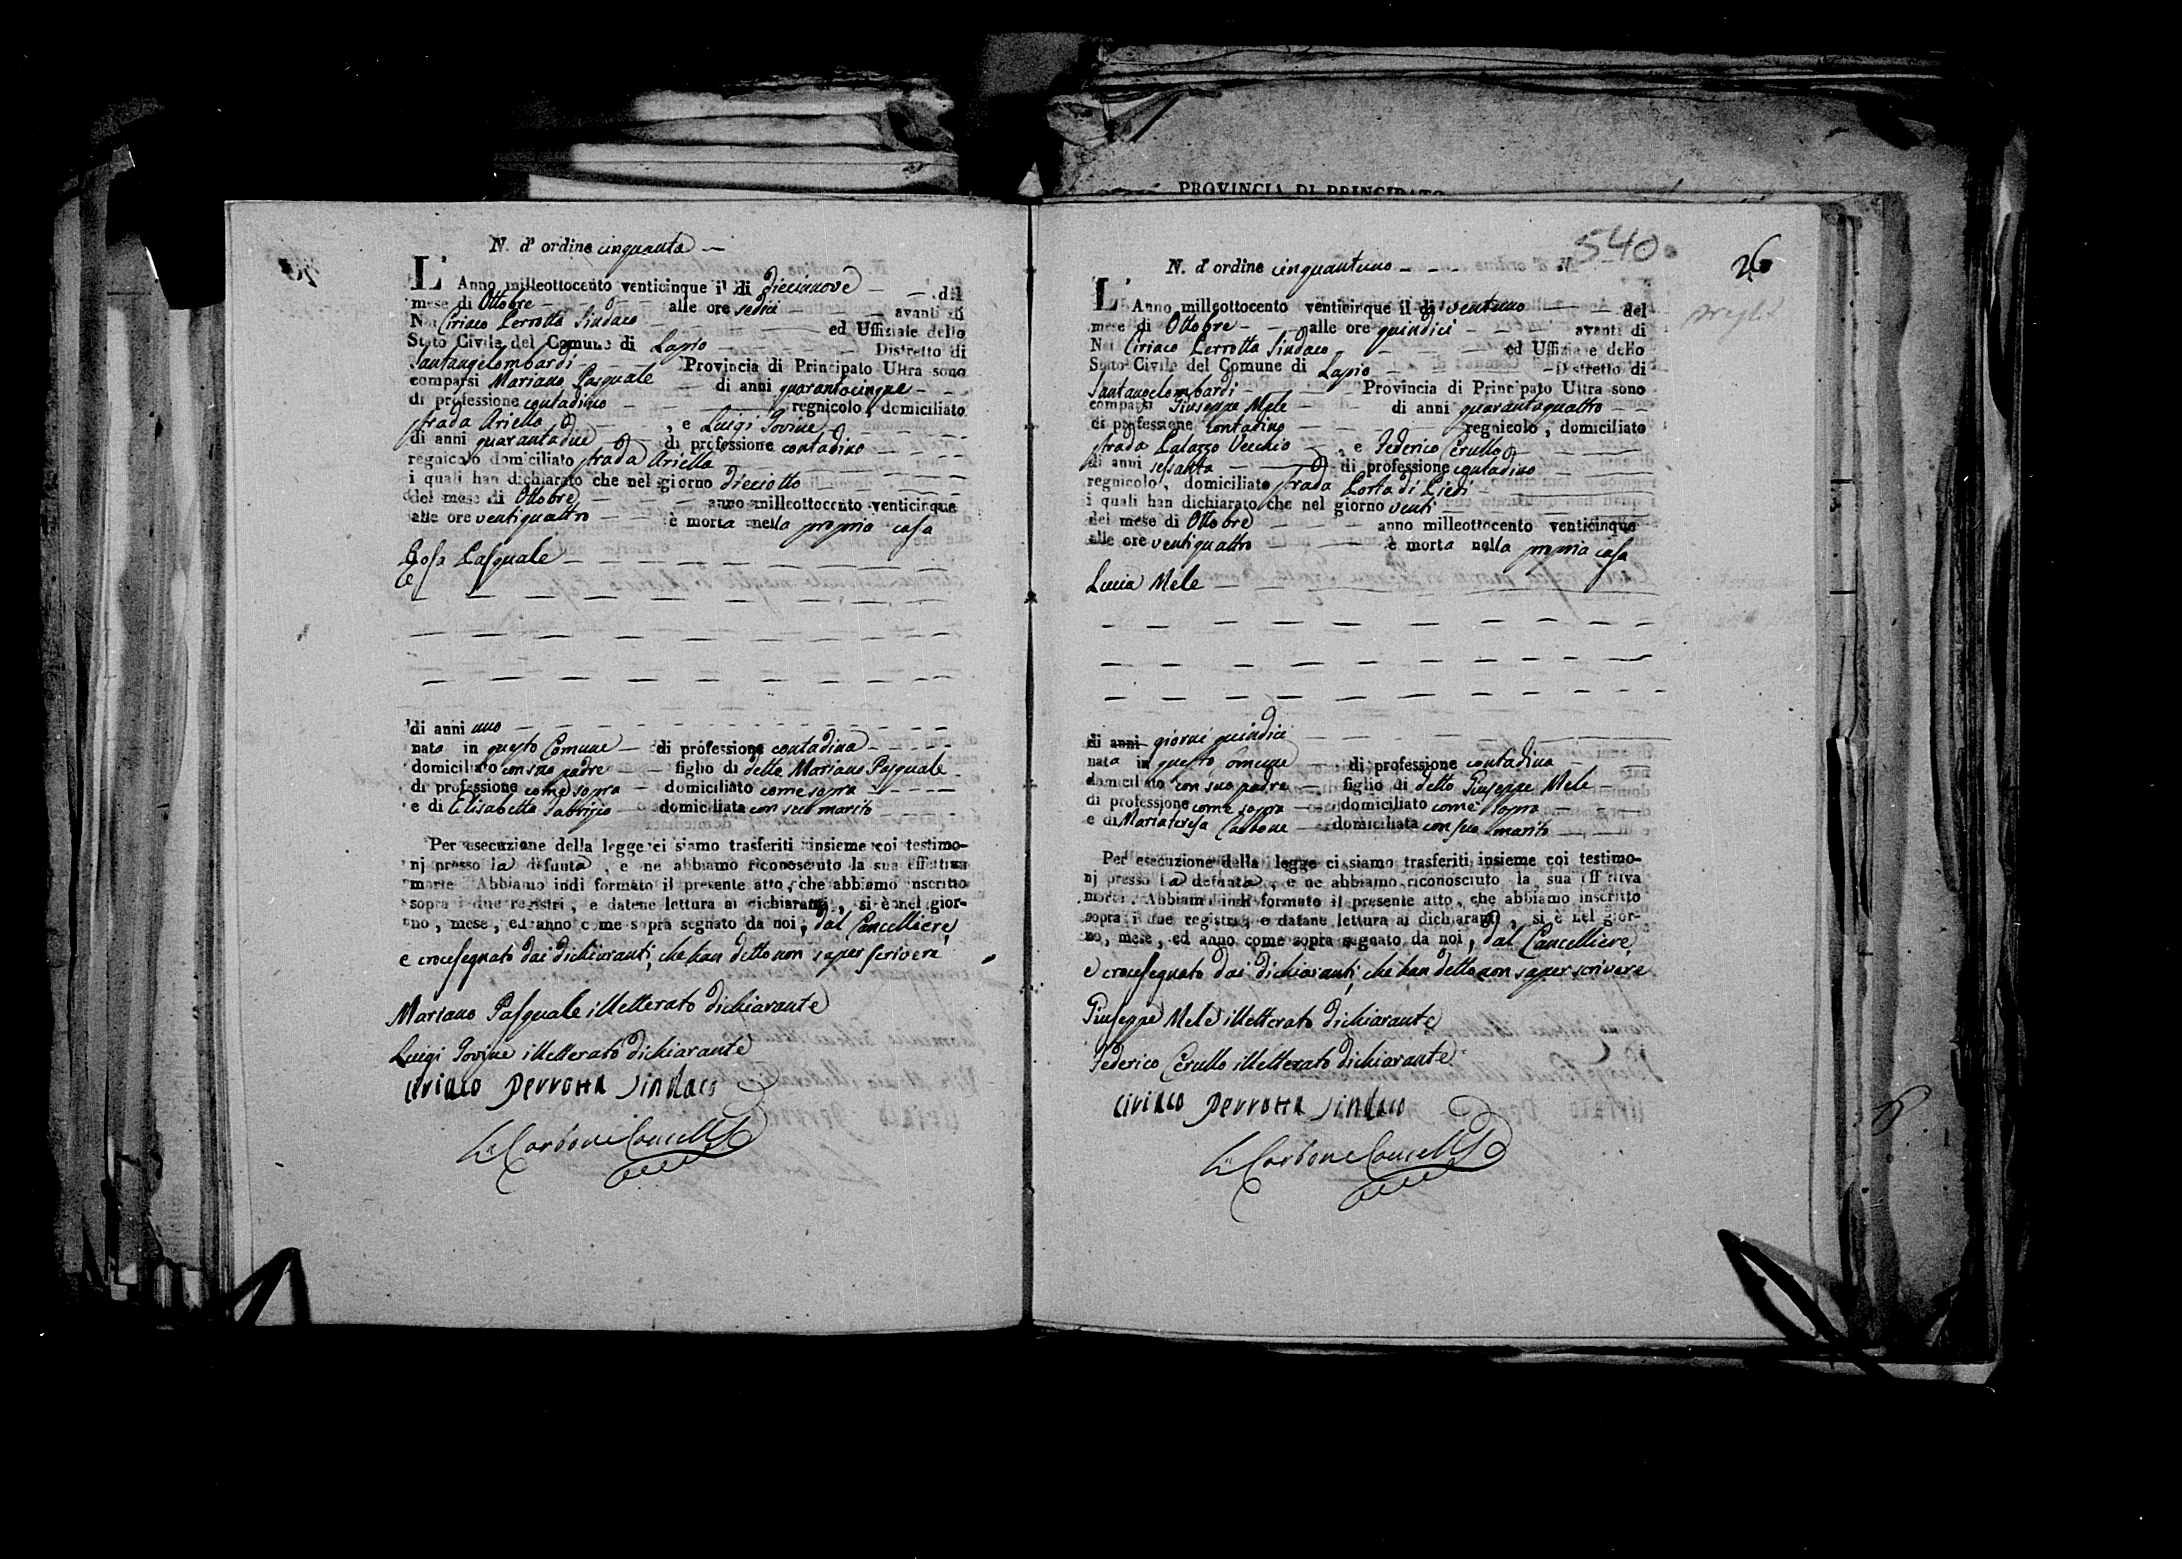 PROVINCIA DI PRINCIPATO
N. d' ordine cinquanta
L' Anno milleottocento venticinque il dì diecianove del
mese di Ottobre alle ore sedici avanti di
Noi Ciriaco Perrotta Sindaco ed Uffiziale dello
Stato Civile del Comune di Lapio Distretto di
Santangelombardi Provincia di Principato Ultra sono
comparsi Mariano Pasquale di anni quarantacinque
di professione contadino regnicolo, domiciliato
strada Ariella, e Luigi Iovine
di anni quarantadue di professione contadino
regnicolo domiciliato strada Ariella
i quali han dichiarato che nel giorno dieciotto
del mese di Ottobre anno milleottocento venticinque
alle ore ventiquattro è morta nella propria casa
Rosa Pasquale
di anni uno
nata in questo Comune di professione contadina
domiciliato con suo padre figlio di detto Mariano Pasquale
di professione come sopra domiciliato come sopra
e di Elisabetta Fabrizio domiciliata con suo marito
Per esecuzione della legge ci siamo trasferiti insieme coi testimo-
nj presso la defunta, e ne abbiamo riconosciuto la sua effettiva
morte. Abbiamo indi formato il presente atto, che abbiamo inscritto
sopra i due registri, e datene lettura ai dichiaranti, si è nel gior-
no, mese, ed anno come sopra segnato da noi, dal Cancelliere,
e crocesegnato dai dichiaranti, che han detto non saper scrivere
Mariano Pasquale illetterato dichiarante
Luigi Iovine illetterato dichiarante
Ciriaco Perrotta Sindaco
Carbone Cancell.
540
26
N. d' ordine cinquantuno
L' Anno milleottocento venticinque il dì ventuno del
mese di Ottobre alle ore quindici avanti di
Noi Ciriaco Perrotta Sindaco ed Uffiziale dello
Stato Civile del Comune di Lapio Distretto di
Santangelombardi Provincia di Principato Ultra sono
comparsi Giuseppe Mele di anni quarantaquattro
di professione contadino regnicolo, domiciliato
strada Palazzo Vecchio, e Federico Cerullo
di anni sessanta di professione contadino
regnicolo, domiciliato strada Porta di Piedi
i quali han dichiarato che nel giorno venti
del mese di Ottobre anno milleottocento venticinque
alle ore ventiquattro è morta nella propria casa
Lucia Mele
di anni giorni quindici
nata in questo omune di professione contadina
domiciliato con suo padre figlio di detto Giuseppe Mele
di professione come sopra domiciliato come sopra
e di Mariateresa Carbone domiciliata con suo marito
Per esecuzione della legge ci siamo trasferiti insieme coi testimo-
nj presso la defunta, e ne abbiamo riconosciuto la sua effettiva
morte. Abbiamo indi formato il presente atto, che abbiamo inscritto
sopra i due registri, e datane lettura ai dichiaranti, si è nel gior-
no, mese, ed anno come sopra segnato da noi, dal Cancelliere,
e crocesegnato dai dichiaranti, che han detto non saper scrivere
Giuseppe Mele illetterato dichiarante
Federico Cerullo illetterato dichiarante
Ciriaco Perrotta Sindaco
Carbone Cancell.